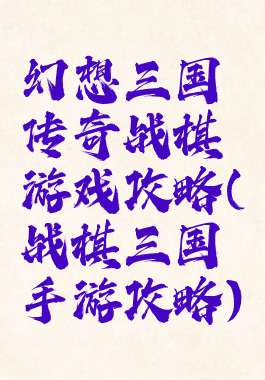 幻想三国
传奇战棋
游戏攻略(
战棋三国
手游攻略)